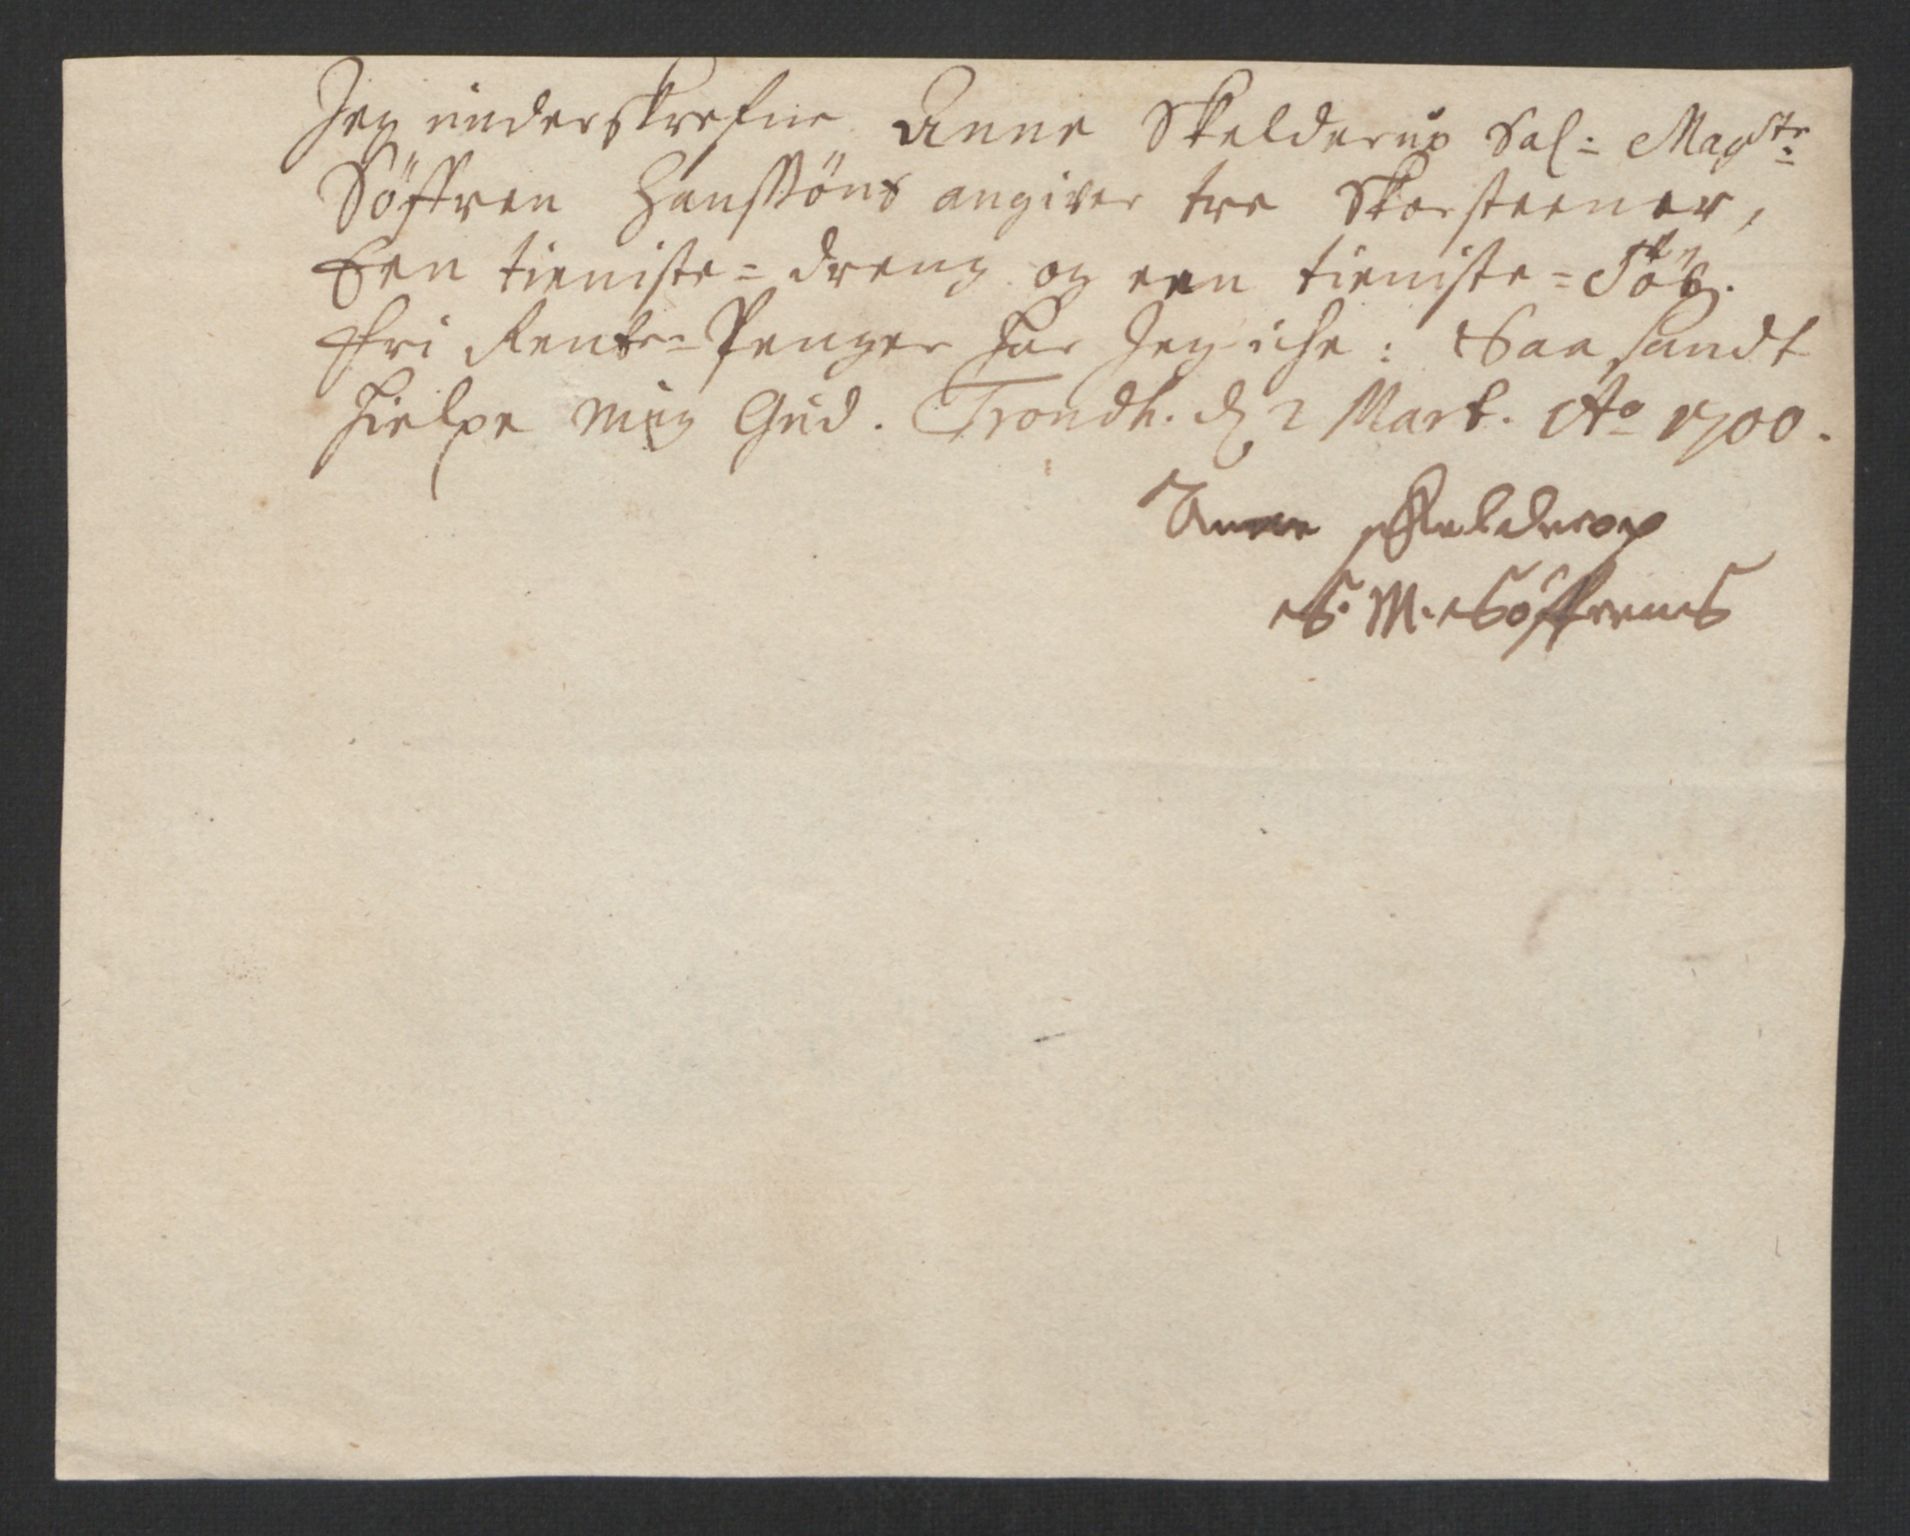 Jeg underskrefne Anne Skelderup Sal: Magstr:
Söffren Hansßöns angiver tre Skorsteener,
Een tieniste= dreng og een tieniste=
Fri Rente=Penger har Jeg iche: Saa sandt
hielpe mig Gud. Trondh. d 2 Mart. Ao 1700.
Anne
S. M. Söffrens